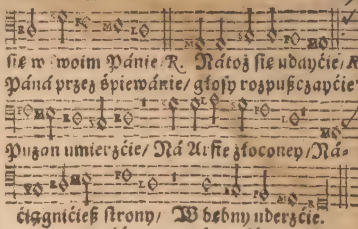 się w swoim Pánie R. Nátoż się udayćie/ R
Páná przez śpiewánie/ głosy rozpuszczayćie
Puzan umierzćie/ Ná Arfie złoconey/ Ná-
ćiągnićież strony/ W bębny uderzćie.